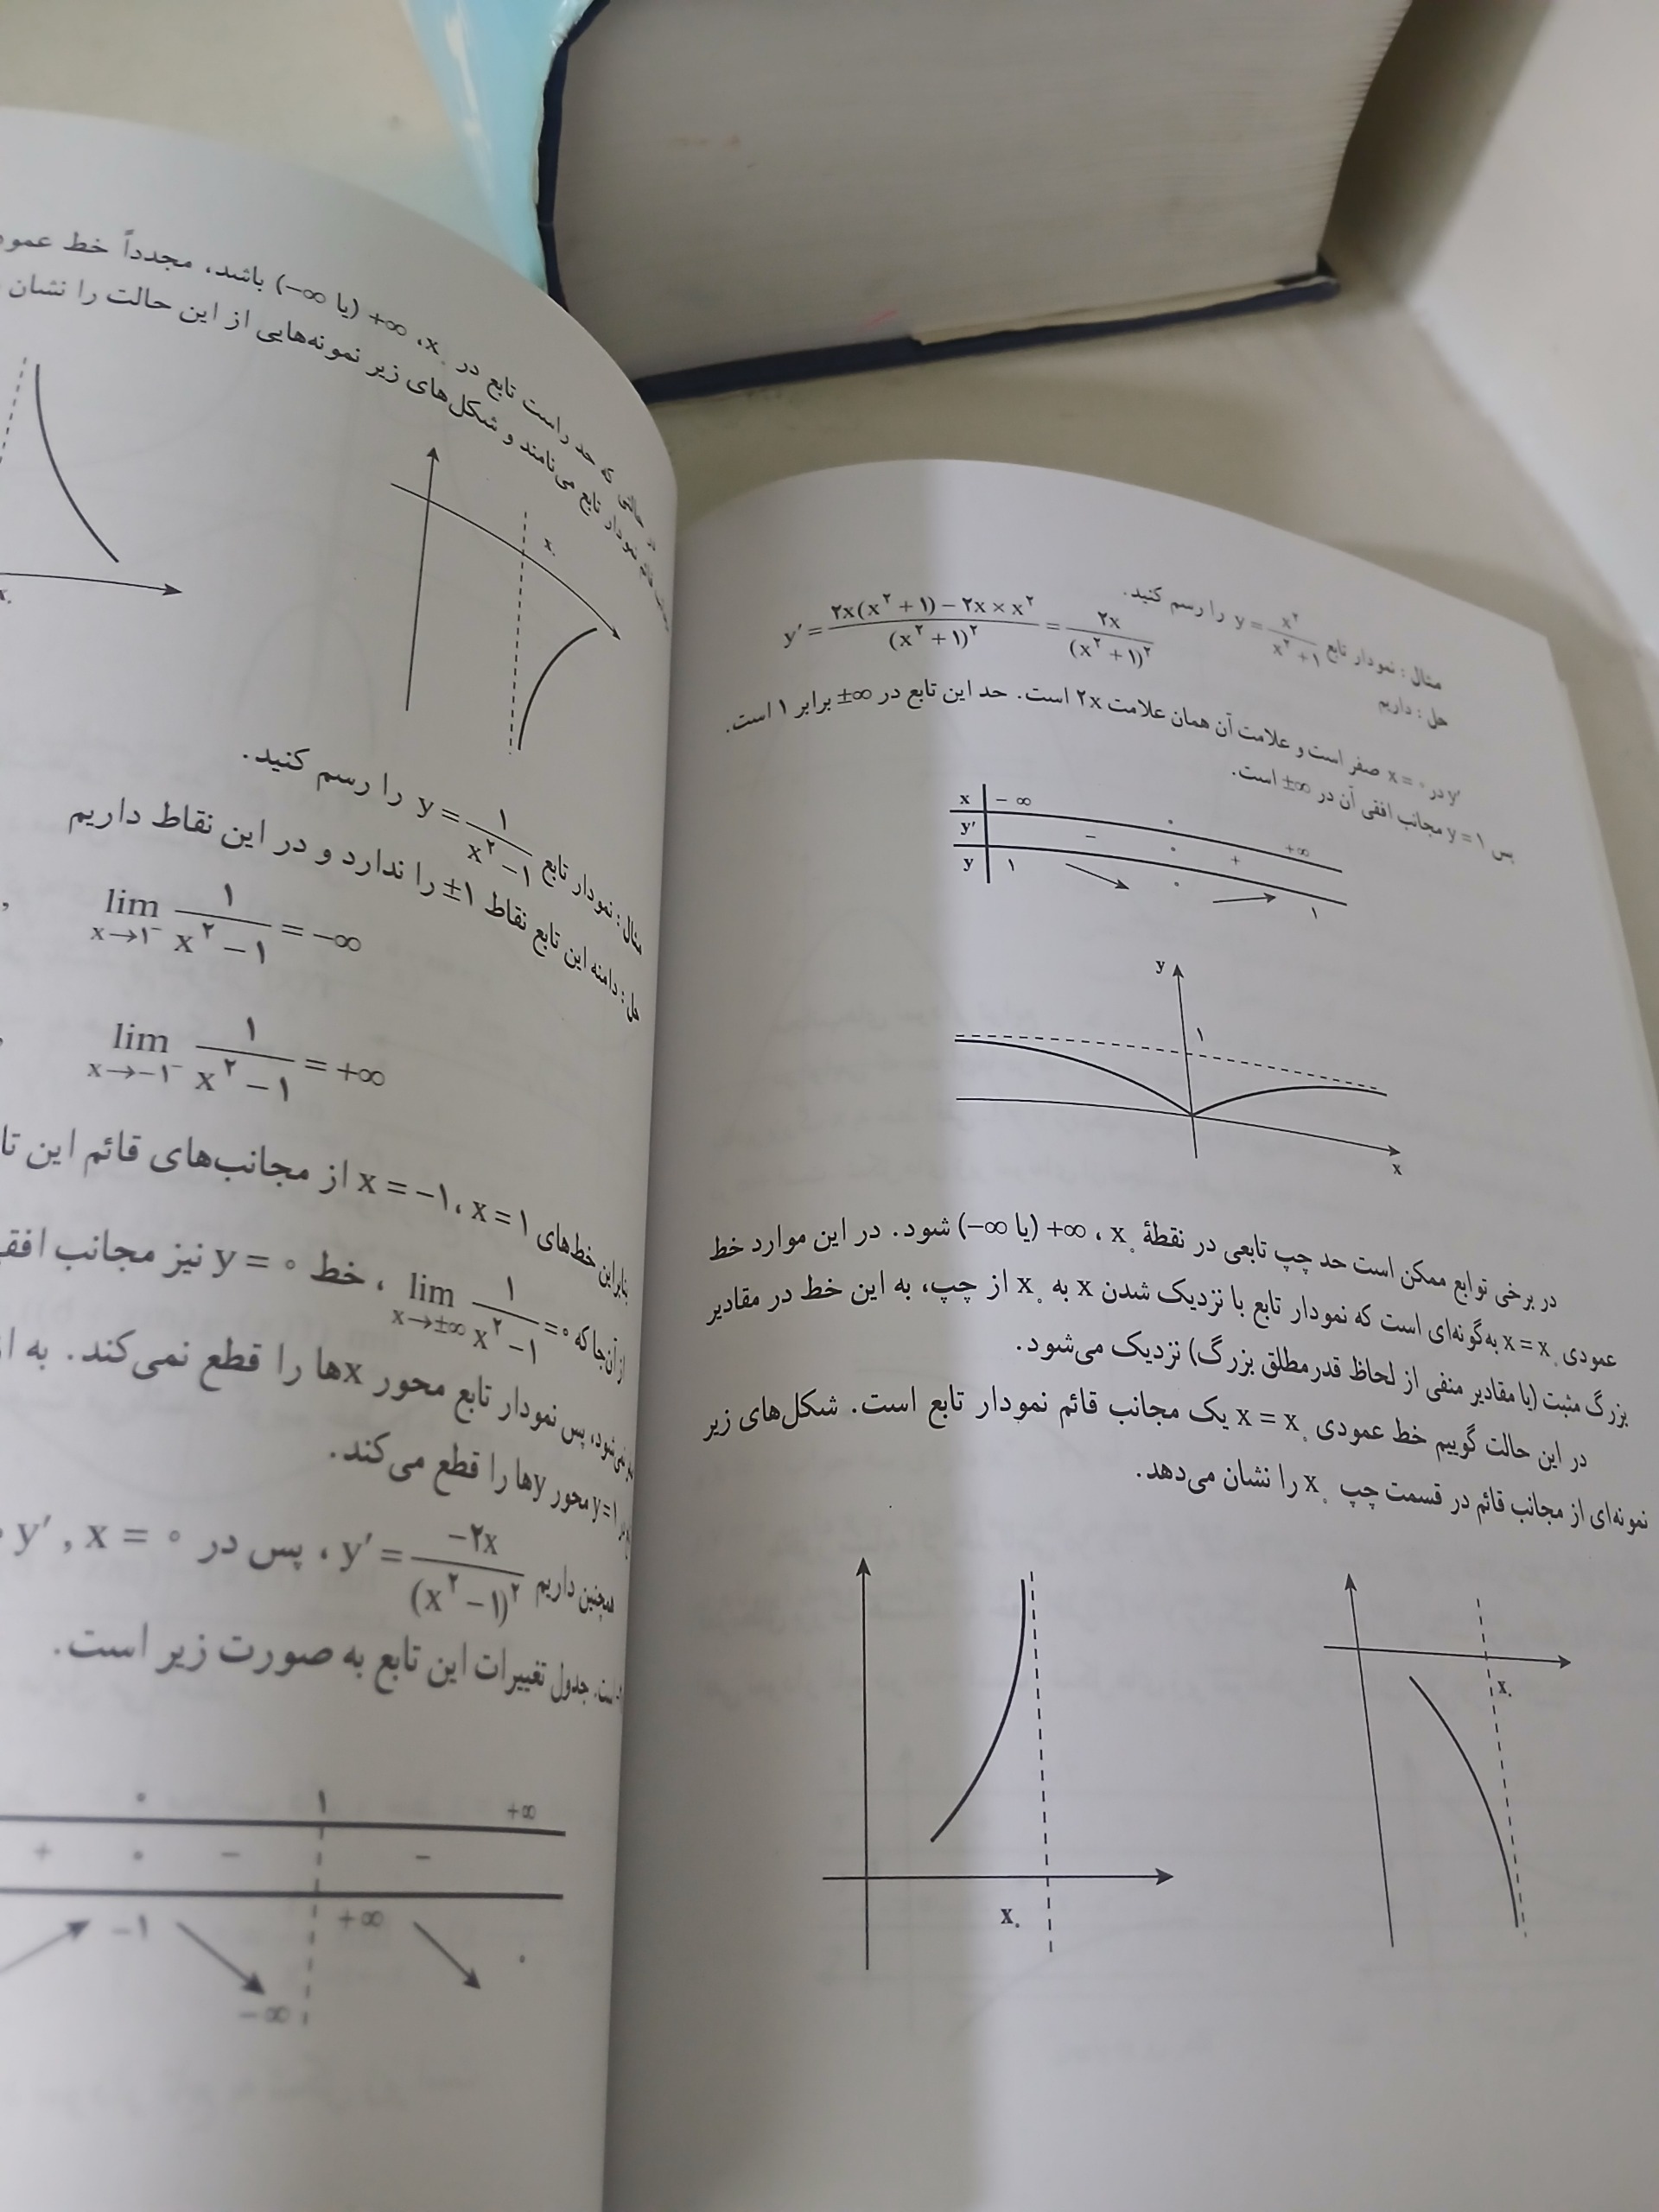 مثال : نمودار تابع y = x²/(x²+۱) را رسم کنید.
حل : داریم y′ = (۲x(x²+۱) − ۲x×x²)/(x²+۱)² = ۲x/(x²+۱)²
y′ در x = ۰ صفر است و علامت آن همان علامت ۲x است. حد این تابع در ±∞ برابر ۱ است.
پس y = ۱ مجانب افقی آن در ±∞ است.
x −∞ ۰ +∞
y′ − ۰ +
y ۱ ۰ ۱
y
۱
x
در برخی توابع ممکن است حد چپ تابعی در نقطهٔ x۰، +∞ (یا −∞) شود. در این موارد خط
عمودی x = x۰ به‌گونه‌ای است که نمودار تابع با نزدیک شدن x به x۰ از چپ، به این خط در مقادیر
بزرگ مثبت (یا مقادیر منفی از لحاظ قدرمطلق بزرگ) نزدیک می‌شود.
در این حالت گوییم خط عمودی x = x۰ یک مجانب قائم نمودار تابع است. شکل‌های زیر
نمونه‌ای از مجانب قائم در قسمت چپ x۰ را نشان می‌دهد.
x۰
x۰
حالتی که حد راست تابع در x۰، +∞ (یا −∞) باشد، مجدداً خط
نمودار تابع می‌نامند و شکل‌های زیر نمونه‌هایی از این حالت را نشان
x۰
x۰
مثال : نمودار تابع y = ۱/(x²−۱) را رسم کنید.
حل : دامنه این تابع نقاط ±۱ را ندارد و در این نقاط داریم
lim x→۱⁻ ۱/(x²−۱) = −∞ ,
lim x→−۱⁻ ۱/(x²−۱) = +∞ ,
بنابراین خط‌های x = ۱، x = −۱ از مجانب‌های قائم این
از آن‌جا که lim x→±∞ ۱/(x²−۱) = ۰، خط y = ۰ نیز مجانب
نمی‌شود، پس نمودار تابع محور xها را قطع نمی‌کند. به
محور yها را قطع می‌کند.
همچنین داریم y′ = −۲x/(x²−۱)²، پس در x = ۰ , y′
است. جدول تغییرات این تابع به صورت زیر است.
۰ ۱ +∞
+ ۰ − −
−۱ −∞ +∞ ۰